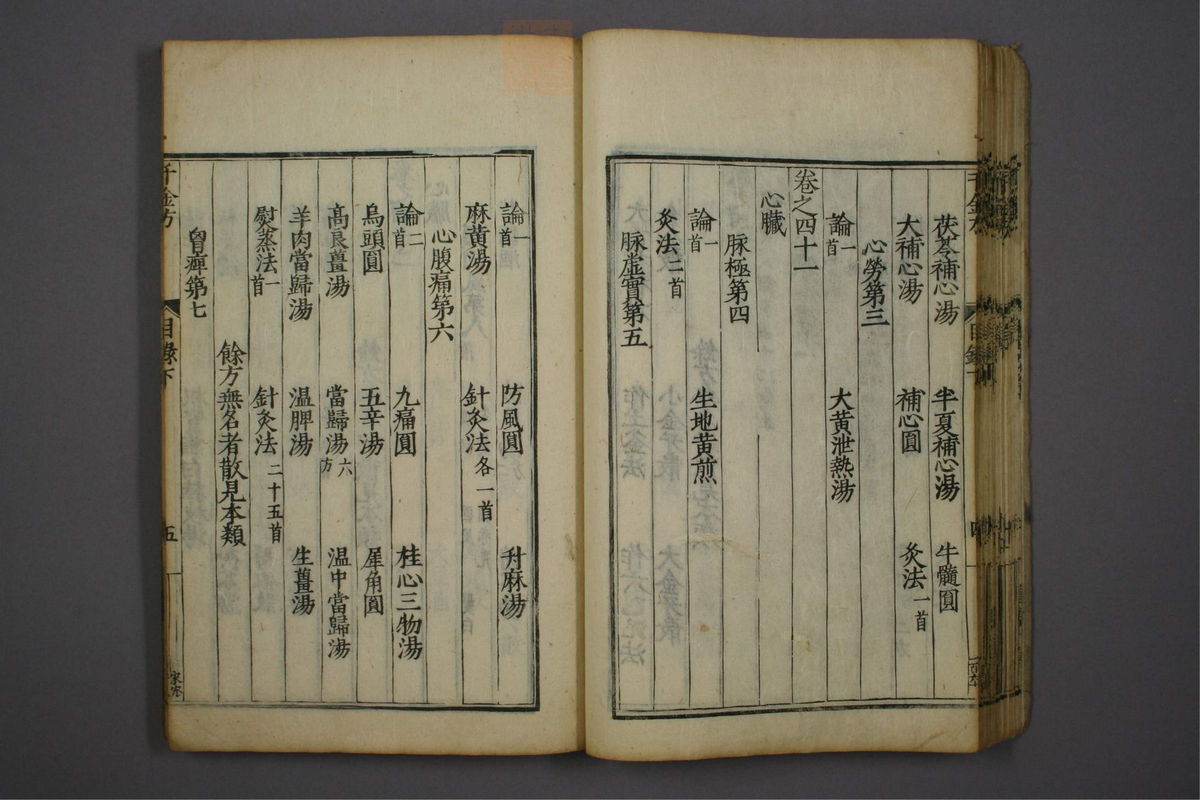 茯苓補心湯 半夏補心湯 牛髓圓
大補心湯 補心圓 灸法一首
心勞第三
論一首 大黄泄熱湯
卷之四十一
心臓
脉極第四
論一首 生地黄煎
灸法二首
脉虚實第五
論一首 防風圓 升麻湯
麻黄湯 針灸法各一首
心腹痛第六
論二首 九痛圓 桂心三物湯
烏頭圓 五辛湯 犀角圓
高良薑湯 當歸湯六方 温中當歸湯
羊肉當歸湯 温脾湯 生薑湯
熨蒸法一首 針灸法二十五首
餘方無名者散見本類
胷痺第七
千金方 目錄下 五